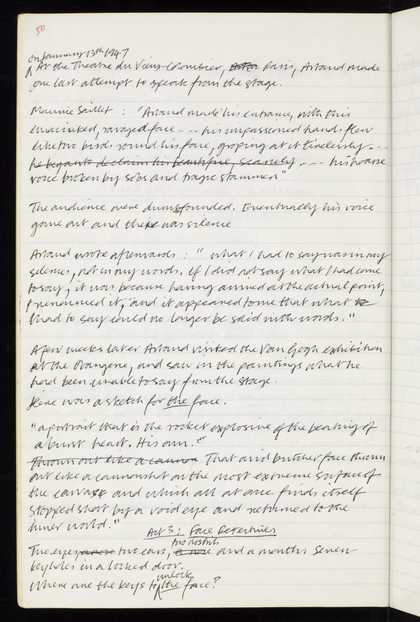 50
On January 13th 1947
At the Theatre du Vieux-Colombier, Paris, Artaud made
one last attempt to speak from the stage.
Maurice Saillet : "Artaud made his entrance, with this
emaciated, ravaged face --- his impassioned hands flew
like two birds round his face, groping at it tirelessly ---
he began to declaim his beautiful, scarcely --- his hoarse
voice broken by sobs and tragic stammers"
The audience were dumbfounded. Eventually his voice
gave out and there was silence
Artaud wrote afterwards : "what I had to say was in my
silences, not in my words. If I did not say what I had come
to say, it was because having arrived at the actual point,
I renounced it, and it appeared to me that what
I had to say could no longer be said with words."
A few weeks later Artaud visited the Van Gogh exhibition
at the Orangerie, and saw in the paintings what he
had been unable to say from the stage.
Here was a sketch for the face.
"a portrait that is the rocket explosive of the beating of
a burst heart. His own."
Thrown out like a cannon That and butcher face thrown
out like a cannonshot on the most extreme surface of
the canvas and which all at once finds itself
stopped short by a void eye and returned to the
inner world."
Act 3: Face Detectives
The eyes two ears, two nostrils and a mouth: seven
keyholes in a locked door.
Where are the keys to unlock the face?